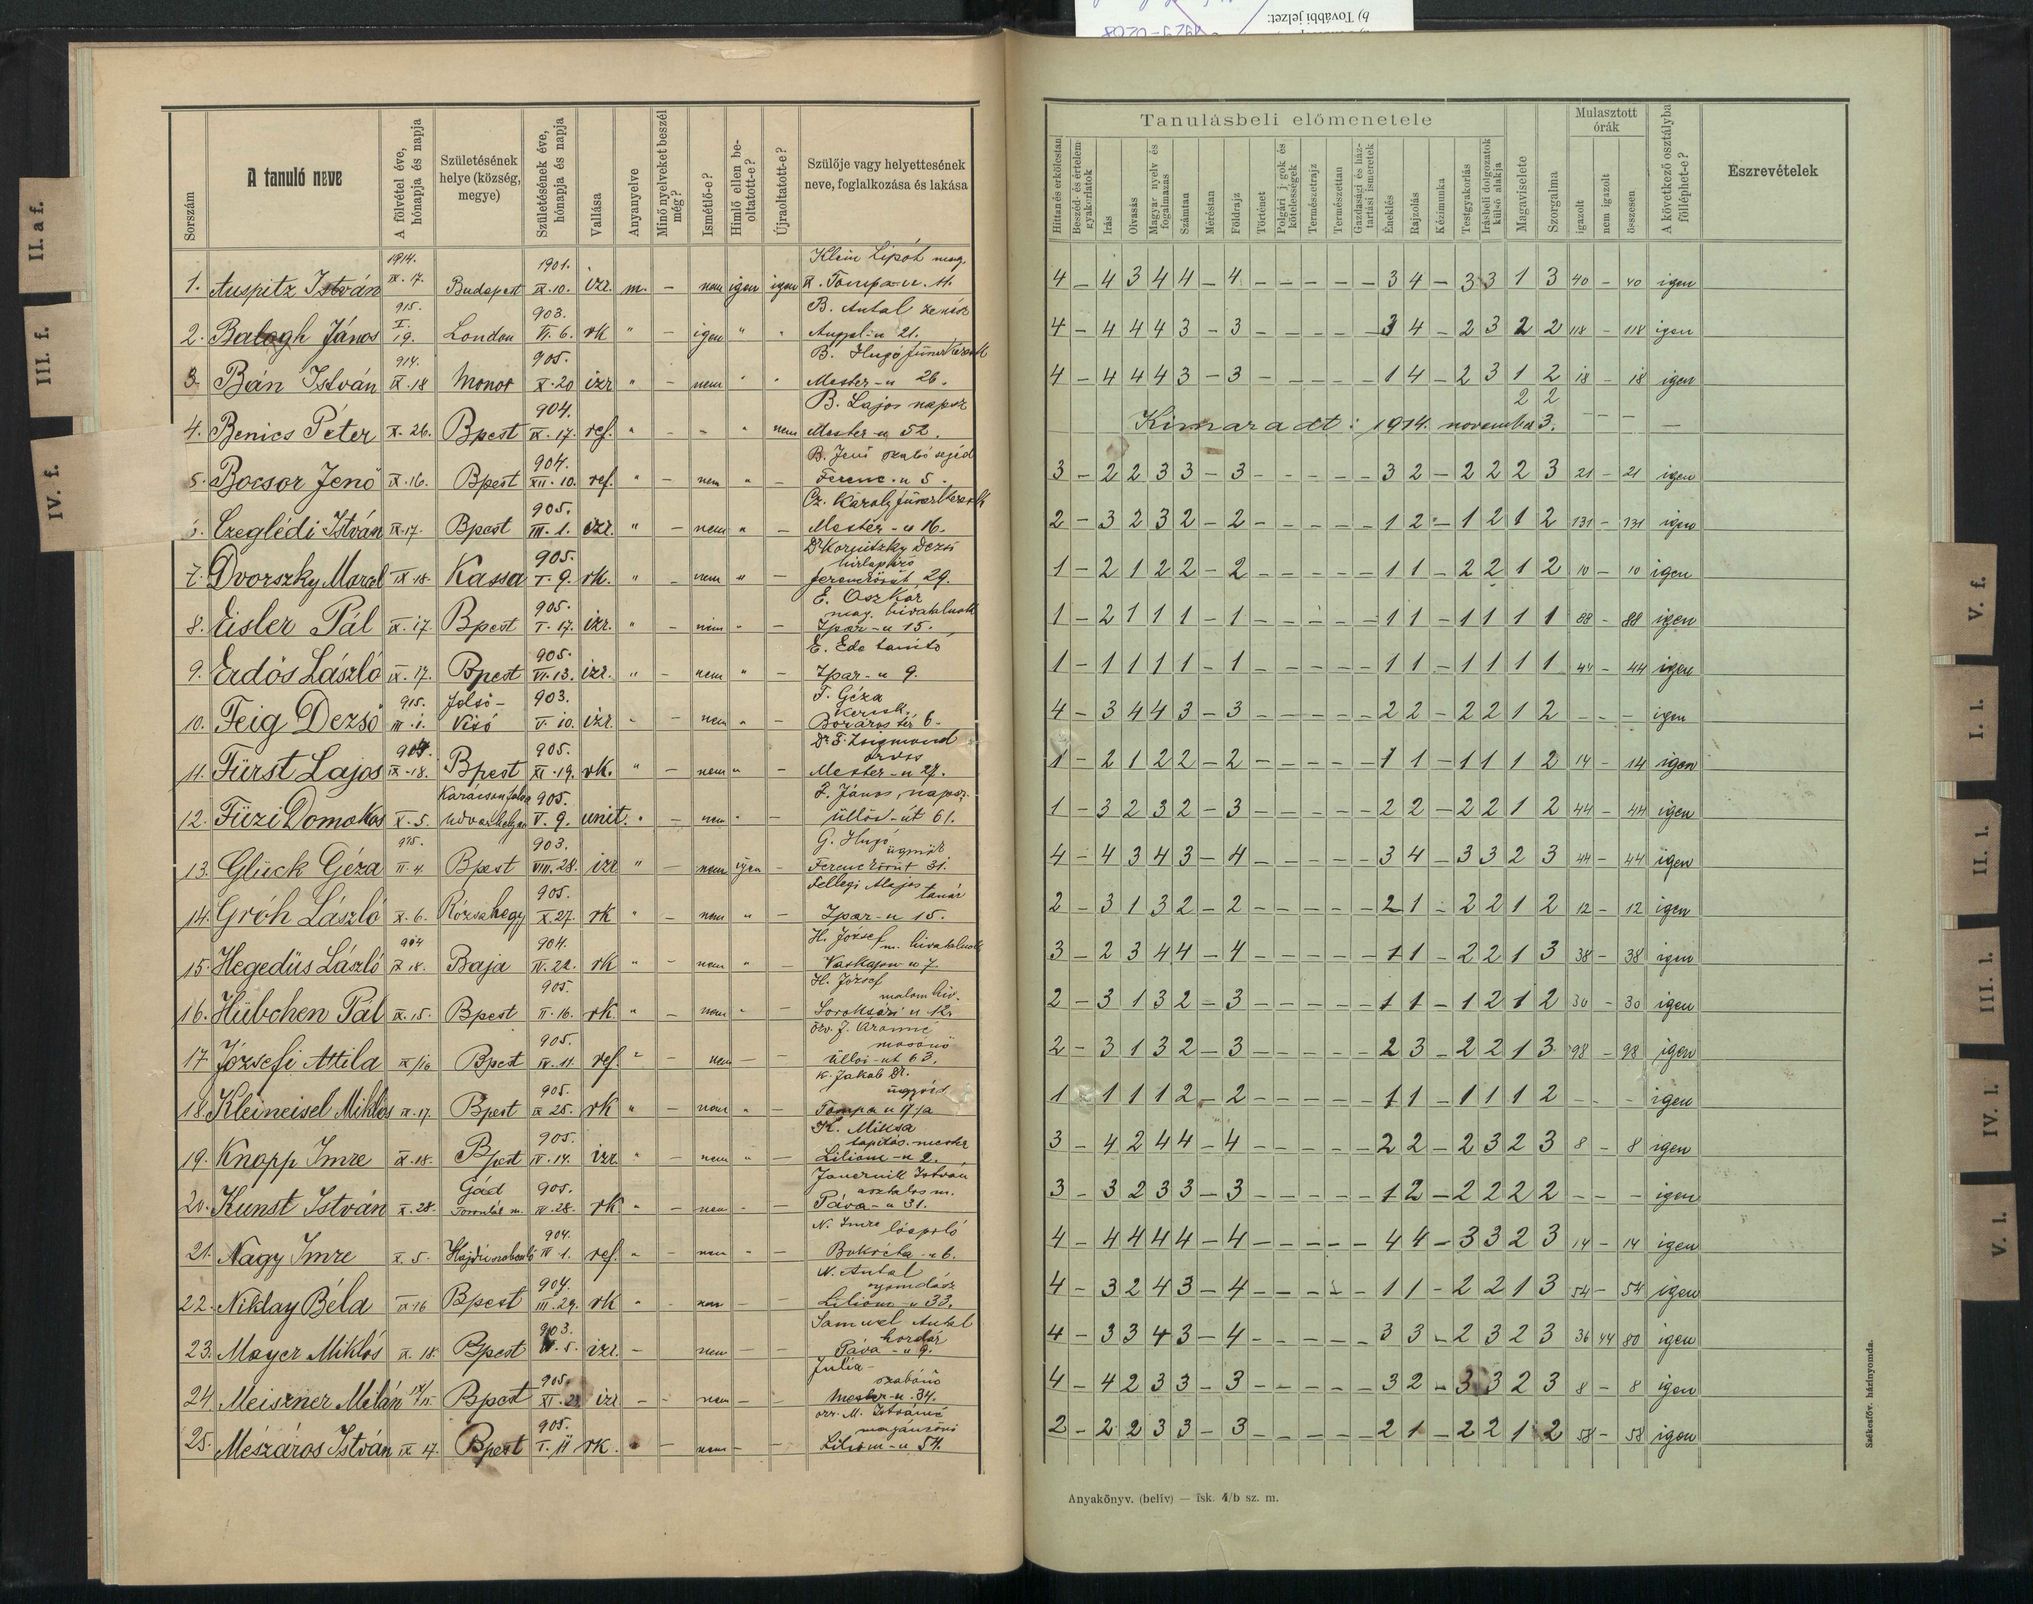 b) További jelzet:
II. a f.
III. f.
IV. f.
V. f.
I. l.
II. l.
III. l.
IV. l.
V. l.
Sorszám
A tanuló neve
A fölvétel éve, hónapja és napja
Születésének helye (község, megye)
Születésének éve, hónapja és napja
Vallása
Anyanyelve
Minő nyelveket beszél még?
Ismétlő-e?
Himlő ellen be-oltatott-e?
Újraoltatott-e?
Szülője vagy helyettesének neve, foglalkozása és lakása
Tanulásbeli előmenetele
Hittan és erkölcstan
Beszéd- és értelem-gyakorlatok
Irás
Olvasás
Magyar nyelv és fogalmazás
Számtan
Méréstan
Földrajz
Történet
Polgári j. gok és kötelességek
Természetrajz
Természettan
Gazdasági és ház-tartási ismeretek
Éneklés
Rajzolás
Kézimunka
Testgyakorlás
Irásbeli dolgozatok külső alakja
Magaviselete
Szorgalma
Mulasztott órák
igazolt
nem igazolt
összesen
A következő osztályba fölléphet-e?
Észrevételek
1. Auspitz István 1914. IX. 17. Budapest 1901. IX. 10. izr. m. – nem igen igen Klein Lipót mag. Tompa u. 11. 4 – 4 3 4 4 – 4 – – – – – 3 4 – 3 3 1 3 40 – 40 igen
2. Balogh János 915. I. 19. London 903. VI. 6. rk " – igen " " B. Antal zenész Angyal-u 21. 4 – 4 4 4 3 – 3 – – – – – 3 4 – 2 3 2 2 118 – 118 igen
3. Bán István 914. IX. 18 Monor 905. X. 20 izr " – nem " " B. Hugó fűszerkeresk Mester-u 26. 4 – 4 4 4 3 – 3 – – – – – 1 4 – 2 3 1 2 18 – 18 igen
4. Benics Péter X. 26. Bpest 904. IX. 17. ref. " – – " nem B. Lajos napsz Mester-u 52. Kimaradt: 1914. november 3. 2 2 – – – –
5. Bocsor Jenő IX. 16. Bpest 904. XII. 10. ref. " – nem " – B. Jenő szabó segéd Ferenc-u 5. 3 – 2 2 3 3 – 3 – – – – – 3 2 – 2 2 2 3 21 – 21 igen
Czeglédi István IX. 17. Bpest 905. III. 1. izr. " – nem " – Cz. Károly fűszerkeresk Mester-u 16. 2 – 3 2 3 2 – 2 – – – – – 1 2 – 1 2 1 2 131 – 131 igen
7. Dvorszky Marcel IX. 18. Kassa 905. I. 9. rk. " – nem " – Dr Kornitzky Dezső hirlapíró Ferenckörút 29. 1 – 2 1 2 2 – 2 – – – – – 1 1 – 2 2 1 2 10 – 10 igen
8. Eisler Pál IX. 17 Bpest 905. I. 17. izr. " – nem " – E. Oszkár mag. hivatalnok Ipar-u 15. 1 – 2 1 1 1 – 1 – – – – – 1 1 – 1 1 1 1 88 – 88 igen
9. Erdős László IX. 17. Bpest 905. VI. 13. izr. " – nem " – E. Ede tanító Ipar-u 9. 1 – 1 1 1 1 – 1 – – – – – 1 1 – 1 1 1 1 44 – 44 igen
10. Feig Dezső 915. III. 1. Felső-Visó 903. V. 10. izr. " – nem " – F. Géza keresk. Boráros tér 6. 4 – 3 4 4 3 – 3 – – – – – 2 2 – 2 2 1 2 – – – igen
11. Fürst Lajos IX. 18. Bpest 905. XI. 19. rk. " – nem " – Dr. F. Zsigmond orvos Mester-u 27. 1 – 2 1 2 2 – 2 – – – – – 1 1 – 1 1 1 2 14 – 14 igen
12. Füzi Domokos X. 5. Karácsonfalva Udvarhely m 905. V. 9. unit. " – nem " – F. János, napsz. Üllői-út 61. 1 – 3 2 3 2 – 3 – – – – – 2 2 – 2 2 1 2 44 – 44 igen
13. Glück Géza 915. II. 4. Bpest 903. VIII. 28. izr. " – nem igen – G. Hugó ügynök Ferenc körút 31. 4 – 4 3 4 3 – 4 – – – – – 3 4 – 3 3 2 3 44 – 44 igen
14. Gróh László X. 6. Rózsahegy 905. X. 27. rk " – nem " – Fellegi Alajos tanár Ipar-u 15. 2 – 3 1 3 2 – 2 – – – – – 2 1 – 2 2 1 2 12 – 12 igen
15. Hegedüs László 914 IX 18. Baja 904. IV. 22. rk " – nem " – H. József m. hivatalnok Vaskapu-u 7. 3 – 2 3 4 4 – 4 – – – – – 1 1 – 2 2 1 3 38 – 38 igen
16. Hübchen Pál IX. 15. Bpest 905. II. 16. rk. " – nem " – H. József malom hiv. Soroksári u 12. 2 – 3 1 3 2 – 3 – – – – – 1 1 – 1 2 1 2 30 – 30 igen
17. Józsefi Attila IX/16 Bpest 905. IV. 11. ref. " – nem – – özv. J. Áronné mosónő Üllői-ut 63. 2 – 3 1 3 2 – 3 – – – – – 2 3 – 2 2 1 3 98 – 98 igen
18. Kleineisel Miklós IX. 17. Bpest 905. IX 25. rk " – nem " – K. Jakab Dr. ügyvéd Tompa u 17/a 1 – 1 1 1 2 – 2 – – – – – 1 1 – 1 1 1 2 – – – igen
19. Knopp Imre IX. 18. Bpest 905. IV. 14. izr. " – nem " – K. Miksa tapétás-mester Liliom-u 2. 3 – 4 2 4 4 – 4 – – – – – 2 2 – 2 3 2 3 8 – 8 igen
20. Kunst István X. 28. Gád Torontál m. 905. IV. 28. rk. " – nem " – István asztalos m. Páva-u 31. 3 – 3 2 3 3 – 3 – – – – – 1 2 – 2 2 2 2 – – – igen
21. Nagy Imre X. 5. Hajdúszoboszló 904. IV 1. ref. " – nem " – N. Imre lóápoló Bokréta-u 6. 4 – 4 4 4 4 – 4 – – – – – 4 4 – 3 3 2 3 14 – 14 igen
22. Niklay Béla IX 16 Bpest 904. III. 29. rk " – nem – – N. Antal nyomdász Liliom-u 33. 4 – 3 2 4 3 – 4 – – – – – 1 1 – 2 2 1 3 54 – 54 igen
23. Mayer Miklós IX. 18. Bpest 903. 5. izr. – nem – – Samuel Antal hordár Páva-u 9. 4 – 3 3 4 3 – 4 – – – – – 3 3 – 2 3 2 3 36 44 80 igen
24. Meiszner Milán Bpest 905. XI. 23 izr – – nem – – Julia szabónő Mester-u. 34. 4 – 4 2 3 3 – 3 – – – – – 3 2 – 3 3 2 3 8 – 8 igen
25. Mészáros István IX 17. Bpest 905. I. 11 rk. – nem – – özv. M. Istvánné magánzónő Liliom-u 54. 2 – 2 2 3 3 – 3 – – – – – 2 1 – 2 2 1 2 58 – 58 igen
Anyakönyv. (belív) — isk. 4/b sz. m.
Székesföv. házinyomda.